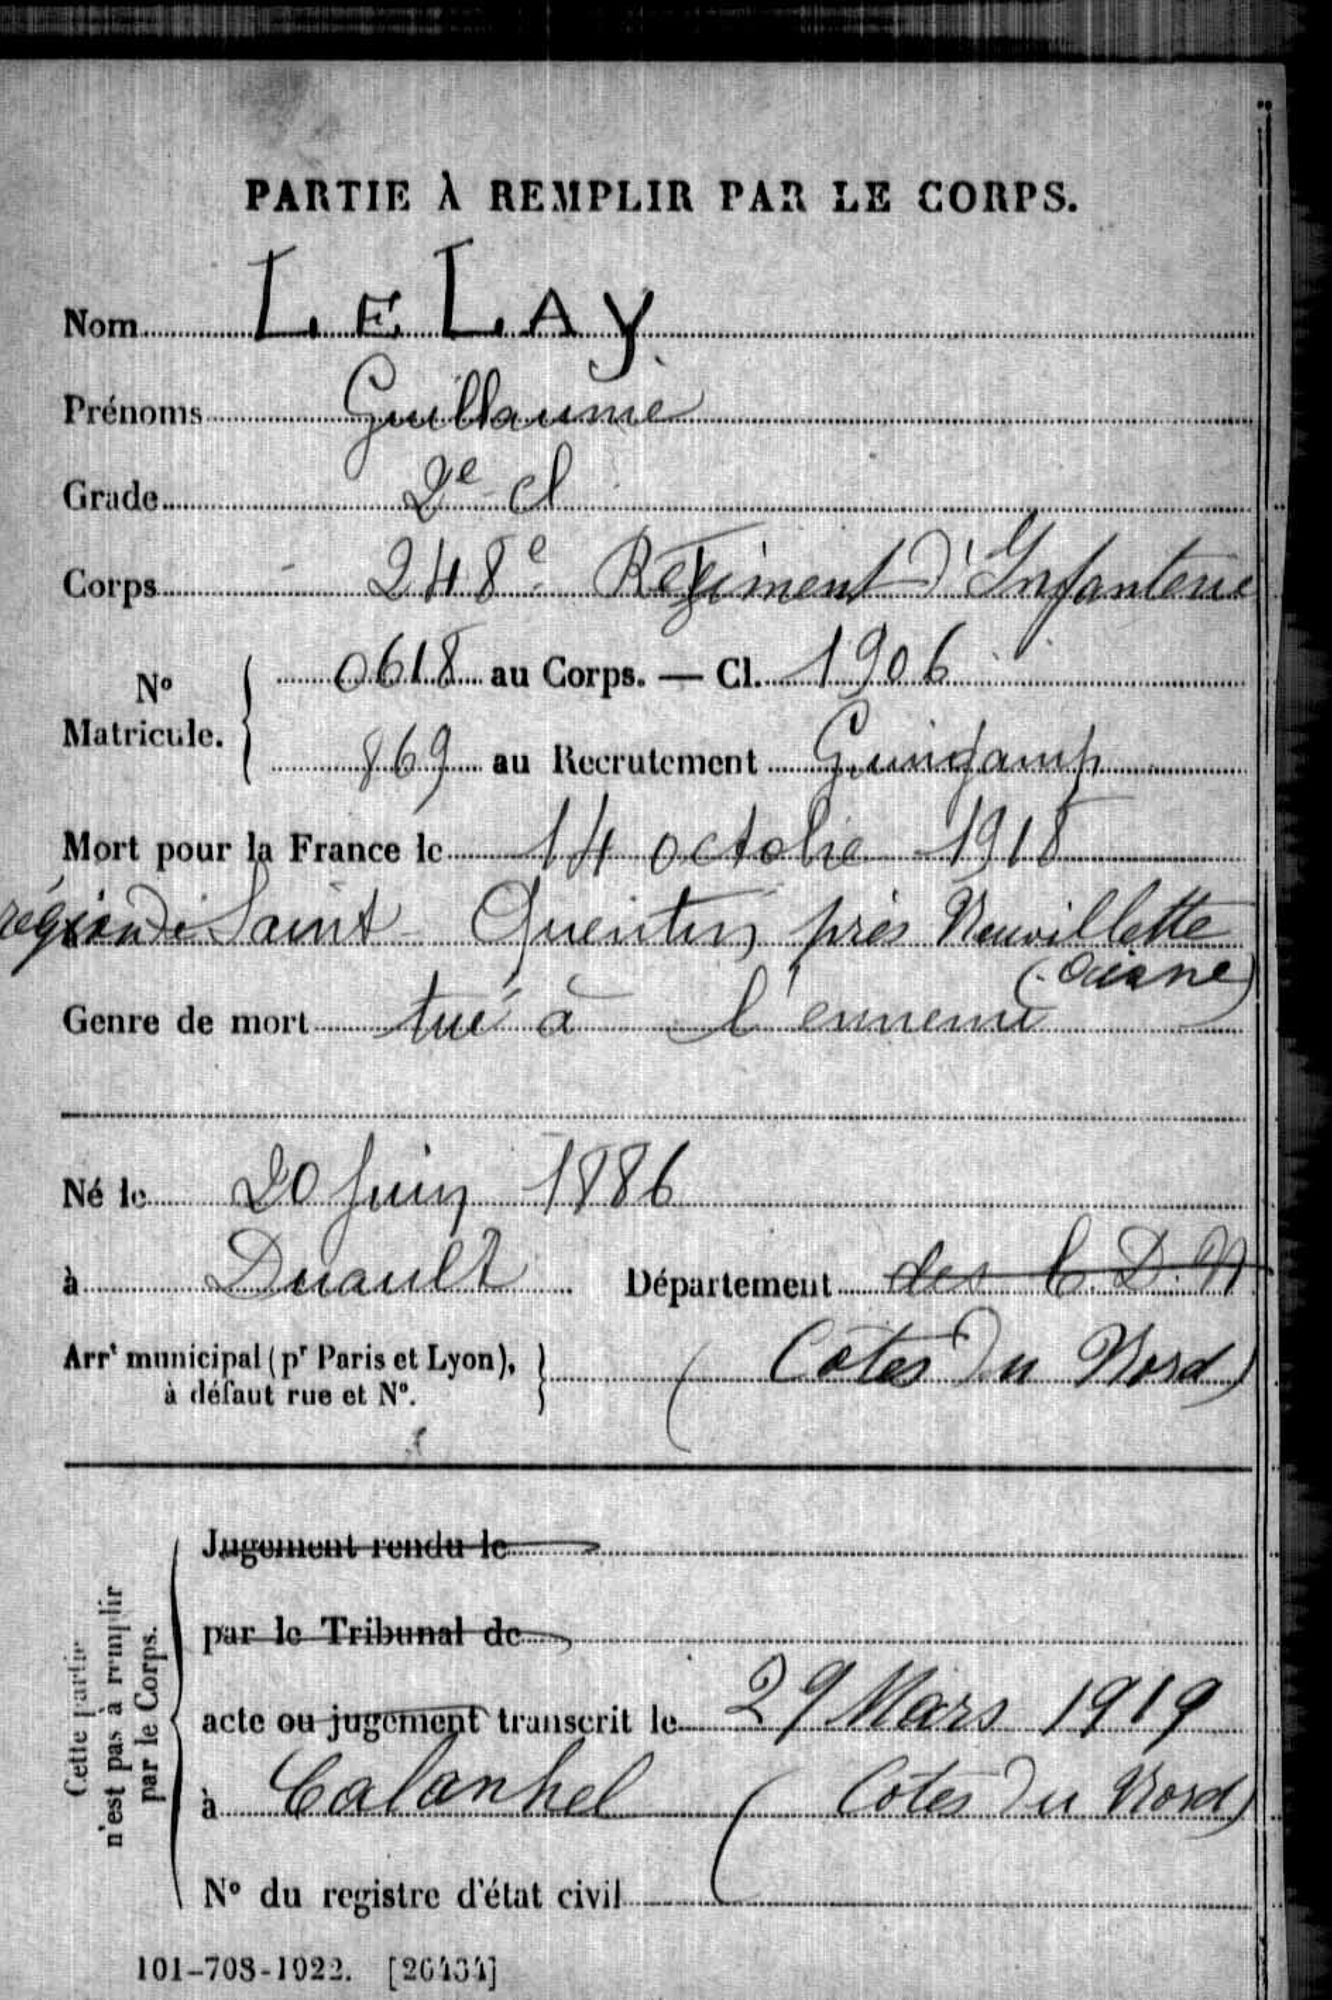 PARTIE À REMPLIR PAR LE CORPS.
Nom LE LAY
Prénoms Guillaume
Grade 2e cl
Corps 248e Régiment d'Infanterie
No Matricule. 0618 au Corps. — Cl. 1906
869 au Recrutement Guingamp
Mort pour la France le 14 octobre 1918
région de Saint Quentin près Neuvillette
(Aisne)
Genre de mort tué à l'ennemi
Né le 20 Juin 1886
à Duault Département des C. D. N
Arrt municipal (pr Paris et Lyon), à défaut rue et No. (Côtes du Nord)
Cette partie n'est pas à remplir par le Corps.
Jugement rendu le
par le Tribunal de
acte ou jugement transcrit le 29 Mars 1919
à Calanhel (Côtes du Nord)
No du registre d'état civil
101-708-1922. [26434]